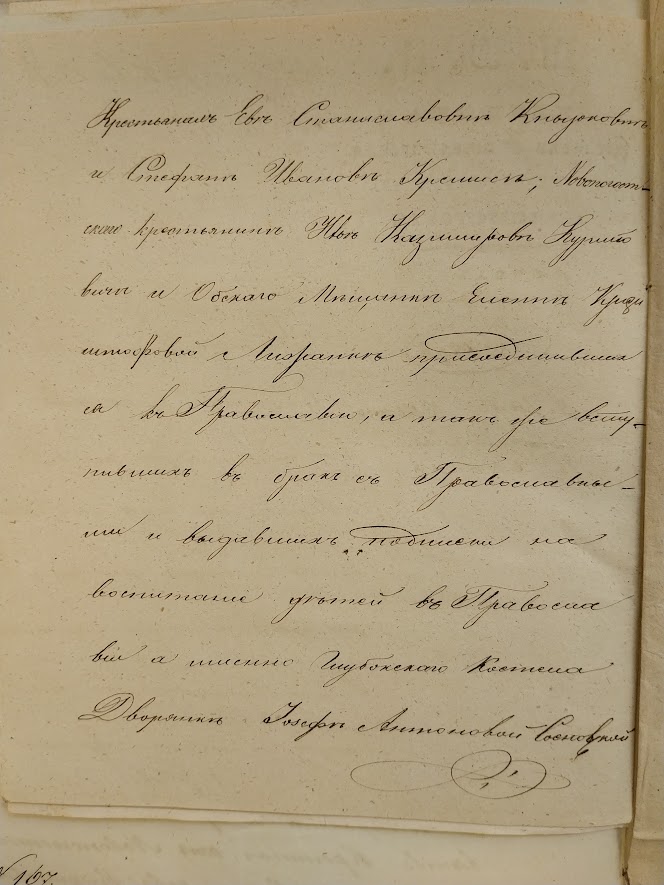 Крестьянамъ Евѣ Станиславовнѣ
и Стефанъ Ивановъ Кремисъ; Новопогост-
скаго крестьянинъ Янъ Казимировъ Курьяно
вичъ и Обскаго Мѣщанкѣ Еленѣ Кризи
штофовой присоединивших
ся къ Православію, а такъ же всту-
пившихъ въ бракъ съ Православны-
ми и выдавшихъ подписки на
воспитаніе дѣтей въ Правосла
віи а именно Глубокскаго Костела
Дворянкѣ Іозефѣ Антоновой Сосновской
№ 167.